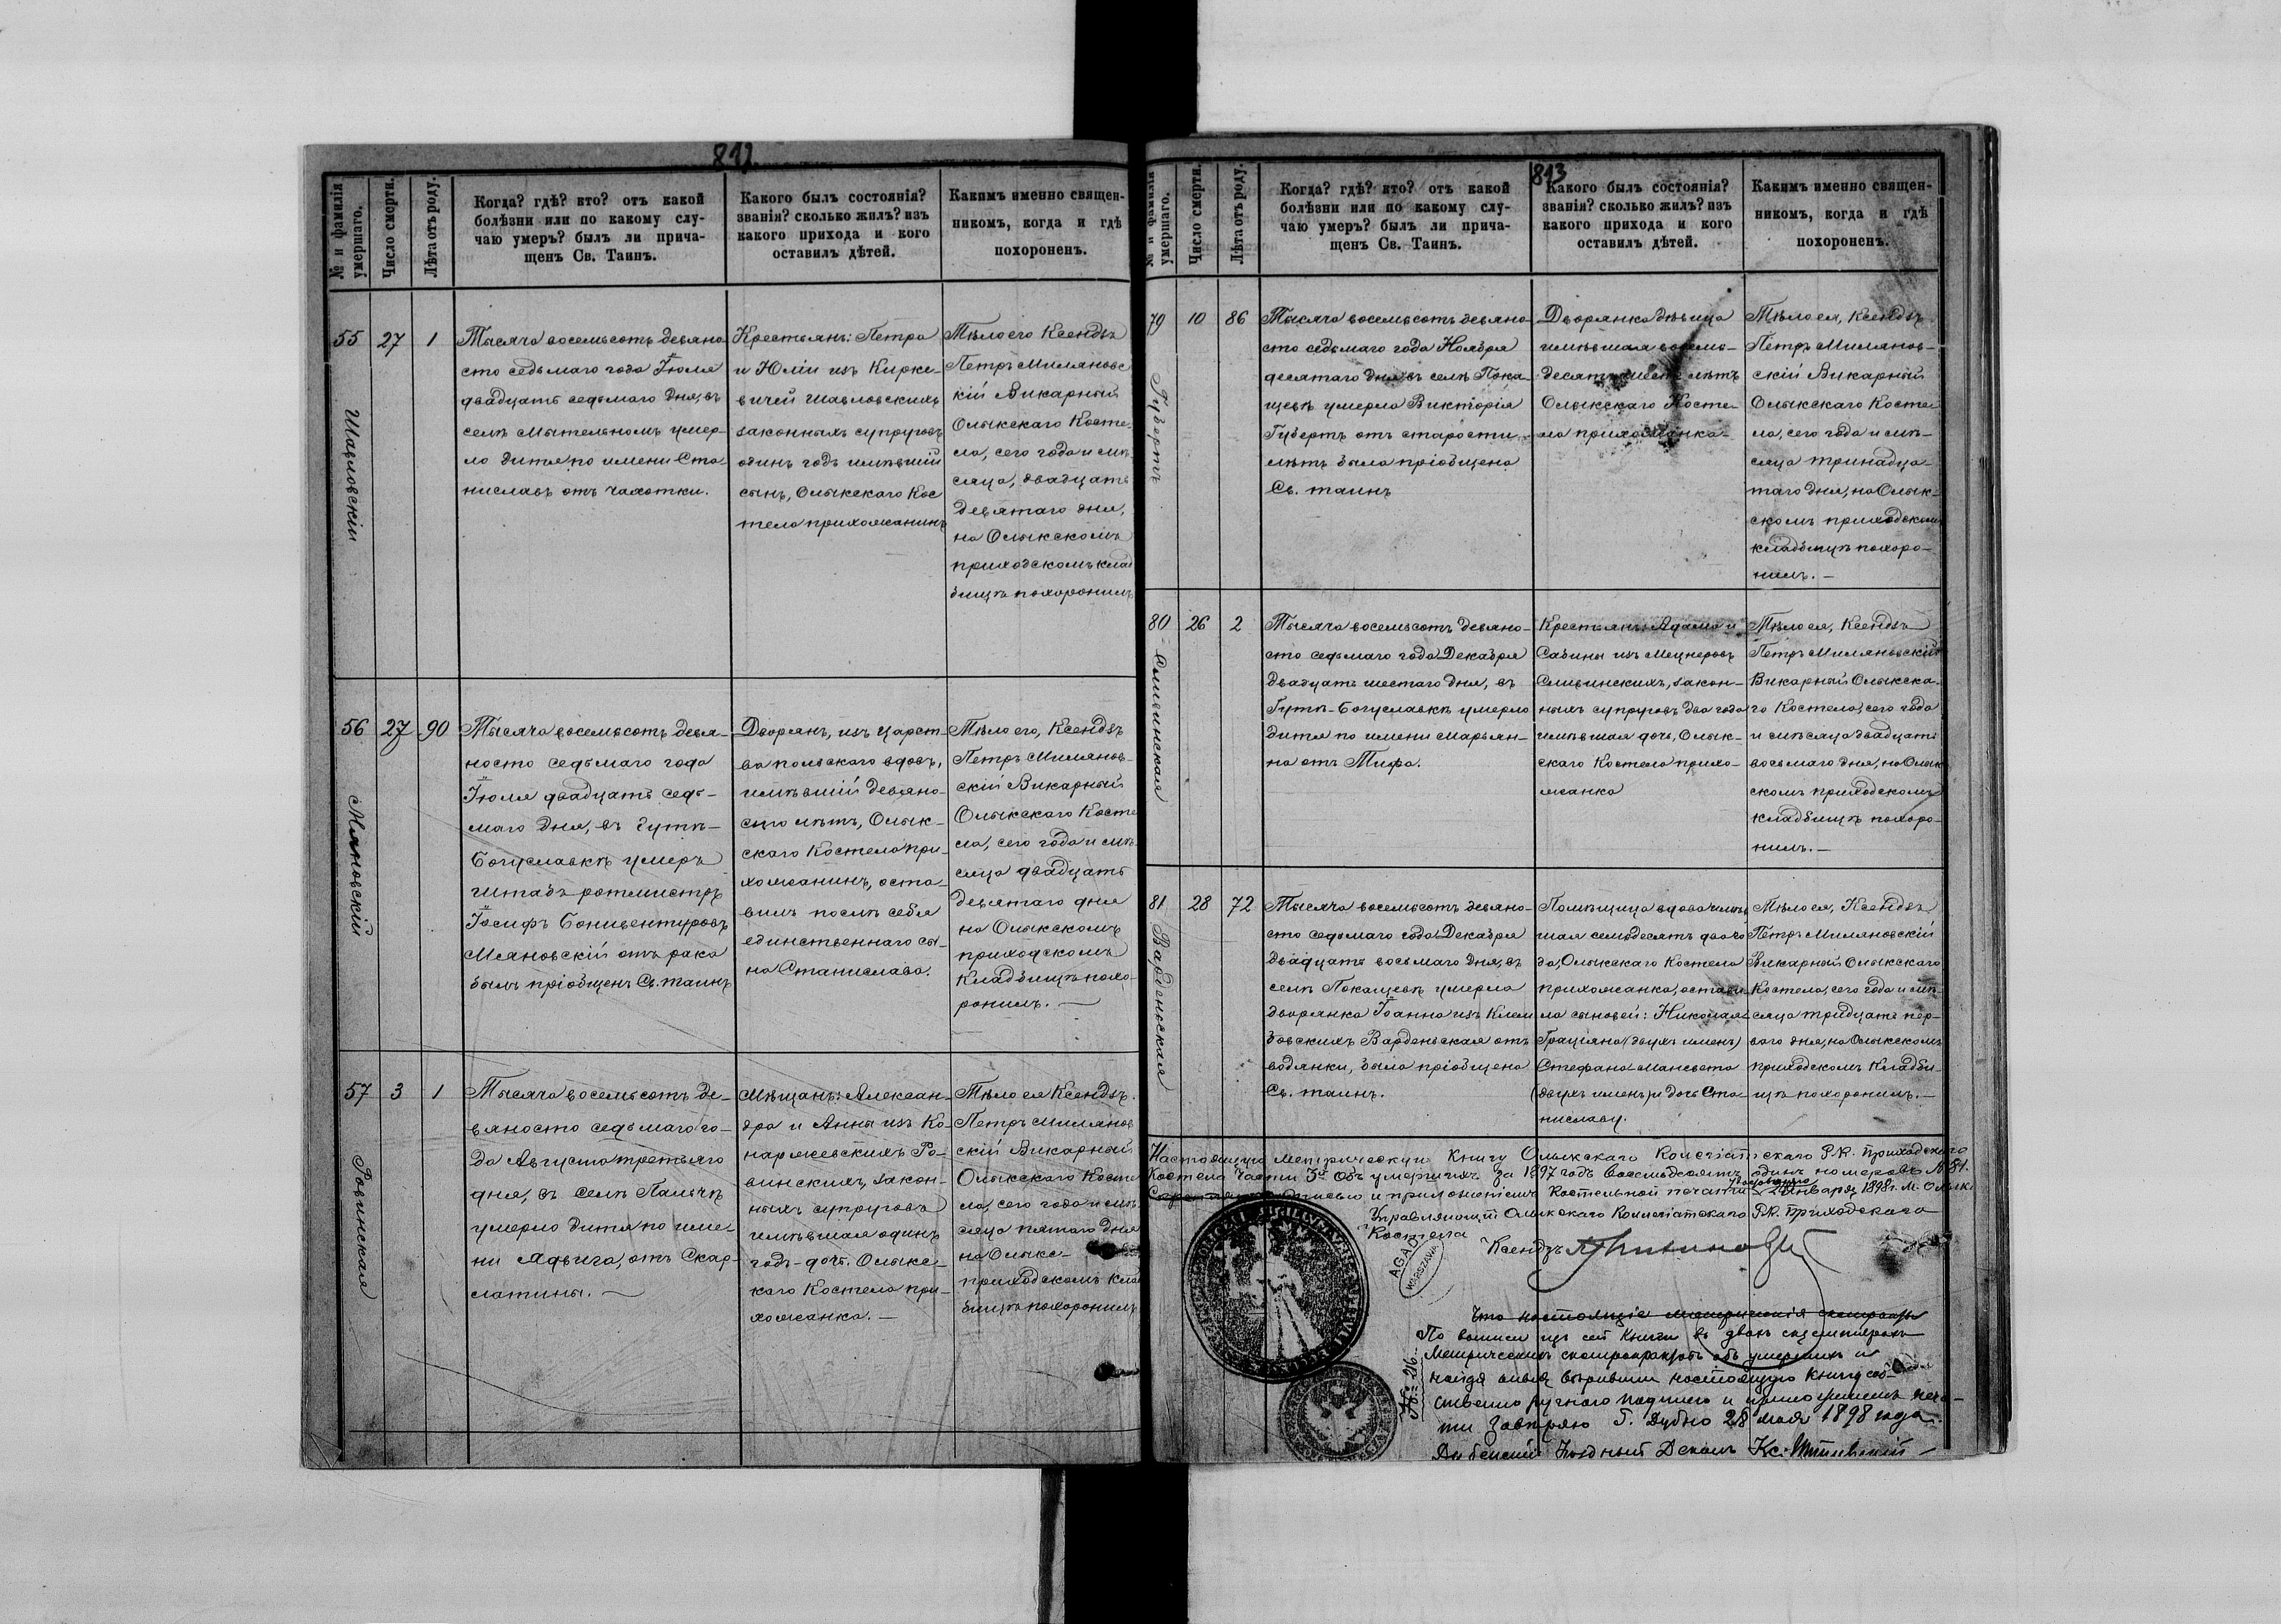 812
№ и фамилія умершаго.
Число смерти.
Лѣта отъ роду.
Когда? гдѣ? кто? отъ какой
болѣзни или по какому слу-
чаю умеръ? былъ ли прича-
щенъ Св. Таинъ.
Какого былъ состоянія?
званія? сколько жилъ? изъ
какого прихода и кого
оставилъ дѣтей.
Какимъ именно священ-
никомъ, когда и гдѣ
похороненъ.
55
Шавловскій
27
1
Тысяча восемьсотъ девяно
сто седьмаго года Іюля
двадцать седьмаго дня, въ
селѣ Мытельномъ умер-
ло дитя по имени Ста-
ниславъ отъ чахотки.
Крестьянъ: Петра
и Юліи изъ Кирке-
вичей Шавловскихъ
законныхъ супруговъ
одинъ годъ имѣвшій
сынъ, Олыкскаго Кос
тела прихожанинъ
Тѣло его Ксендзъ
Петръ Миляновс
кій Викарный
Олыкскаго Косте-
ла, сего года и мѣ-
сяца, двадцать
девятаго дня,
на Олыкскомъ
приходскомъ клад
бищѣ похоронилъ
56
Мяновскій
27
90
Тысяча восемьсотъ девя-
носто седьмаго года
Іюля двадцать седь-
маго дня, въ Гутѣ-
Богуславкѣ умеръ
Штабъ ротмистръ
Іосифъ Бонивентуровъ
Мяновскій отъ рака
былъ пріобщенъ Св. таинъ
Дворянъ, изъ Царст-
ва польскаго вдовъ,
имѣвшій девяно-
сто лѣтъ, Олык-
скаго Костела при-
хожанинъ, оста-
вилъ послѣ себя
единственнаго сы-
на Станислава.
Тѣло его, Ксендзъ
Петръ Милянов-
скій Викарный
Олыкскаго Косте
ла, сего года и мѣ-
сяца двадцать
девятаго дня
на Олыкскомъ
приходскомъ
Кладбищѣ похо-
ронилъ. —
57
Ровинская
3
1
Тысяча восемьсотъ де-
вяносто седьмаго го-
да Августа третьяго
дня, въ селѣ Пальчѣ
умерло дитя по име-
ни Ядвига, отъ Скар-
латины. —
Мѣщанъ: Алексан-
дра и Анны изъ Ко-
наржевскихъ Ро-
винскихъ, закон-
ныхъ супруговъ
имѣвшая одинъ
годъ - дочь. Олыкс-
каго Костела при-
хожанка. —
Тѣло ея Ксендзъ
Петръ Милянов
скій Викарный
Олыкскаго Косте
ла, сего года и мѣ-
сяца пятаго дня
на Олыкс-
приходскомъ клад
бищѣ похоронилъ
813
№ и фамилія умершаго.
Число смерти.
Лѣта отъ роду.
Когда? гдѣ? кто? отъ какой
болѣзни или по какому слу-
чаю умеръ? былъ ли прича-
щенъ Св. Таинъ.
Какого былъ состоянія?
званія? сколько жилъ? изъ
какого прихода и кого
оставилъ дѣтей.
Какимъ именно священ-
никомъ, когда и гдѣ
похороненъ.
79
Губертъ
10
86
Тысяча восемьсотъ девяно
сто седьмаго года Ноября
десятаго дня, въ селѣ Пока-
щевѣ умерла Викторія
Губертъ отъ старости
лѣтъ была пріобщена
Св. таинъ
Дворянка дѣвица
имѣвшая восемь-
десятъ шесть лѣтъ
Олыкскаго Косте-
ла прихожанка
Тѣло ея, Ксендзъ
Петръ Милянов-
скій Викарный
Олыкскаго Косте-
ла, сего года и мѣ-
сяца тринадца-
таго дня, на Олык-
скомъ приходскомъ
кладбищѣ похоро-
нилъ. —
80
Сливинская
26
2
Тысяча восемьсотъ девяно-
сто седьмаго года Декабря
двадцать шестаго дня, въ
Гутѣ-Богуславкѣ умерло
дитя по имени Марьян-
на отъ Тифа.
Крестьянъ: Адама и
Сабины изъ Мецнеровъ
Сливинскихъ, закон-
ныхъ супруговъ два года
имѣвшая дочь, Олык-
скаго Костела прихо-
жанка
Тѣло ея, Ксендзъ
Петръ Миляновскій
Викарный Олыкска-
го Костела, сего года
и мѣсяца двадцать
восьмаго дня, на Олык
скомъ приходскомъ
кладбищѣ похоро-
нилъ. —
81
Варденьская
28
72
Тысяча восемьсотъ девяно-
сто седьмаго года Декабря
двадцать восьмаго дня, въ
селѣ Покащевѣ умерла
дворянка Іоанна изъ Клем
бовскихъ Варденьская отъ
водянки, была пріобщена
Св. таинъ.
Помѣщица вдова имѣв
шая семьдесятъ два го
да, Олыкскаго Костела
прихожанка, остави-
ла сыновей: Николая-
Граціяна (двухъ именъ)
Стефана-Мансвета
(двухъ именъ) и дочь Ста-
ниславу.
Тѣло ея, Ксендзъ
Петръ Миляновскій
Викарный Олыкскаго
Костела, сего года и мѣ-
сяца тридцать пер-
ваго дня, на Олыкскомъ
приходскомъ Кладби-
щѣ похоронилъ. —
Настоящую метрическую Книгу Олыкскаго Колегіатскаго Р.К. приходскаго
Костела Части 3й объ умершихъ за 1897 годъ восемьдесятъ одинъ номеровъ № 81.
и приложеніемъ Костельной печати 2 Января 1898 г. М. Олыка
Управляющій Олыкскаго Колегіатскаго Р.К. приходскаго
Костела
Ксендзъ
AGAD
WARSZAWA
Что настоящіе метрическія
По выписи изъ сей Книги въ двухъ екземплярахъ
Метрическихъ объ умершихъ и
настоящую книгу соб-
ственно ручною подписью и приложеніемъ печа-
ти завѣряю Г. Дубно 28 мая 1898 года.
№ 216.
Дубенскій Уѣздный Деканъ Кс.